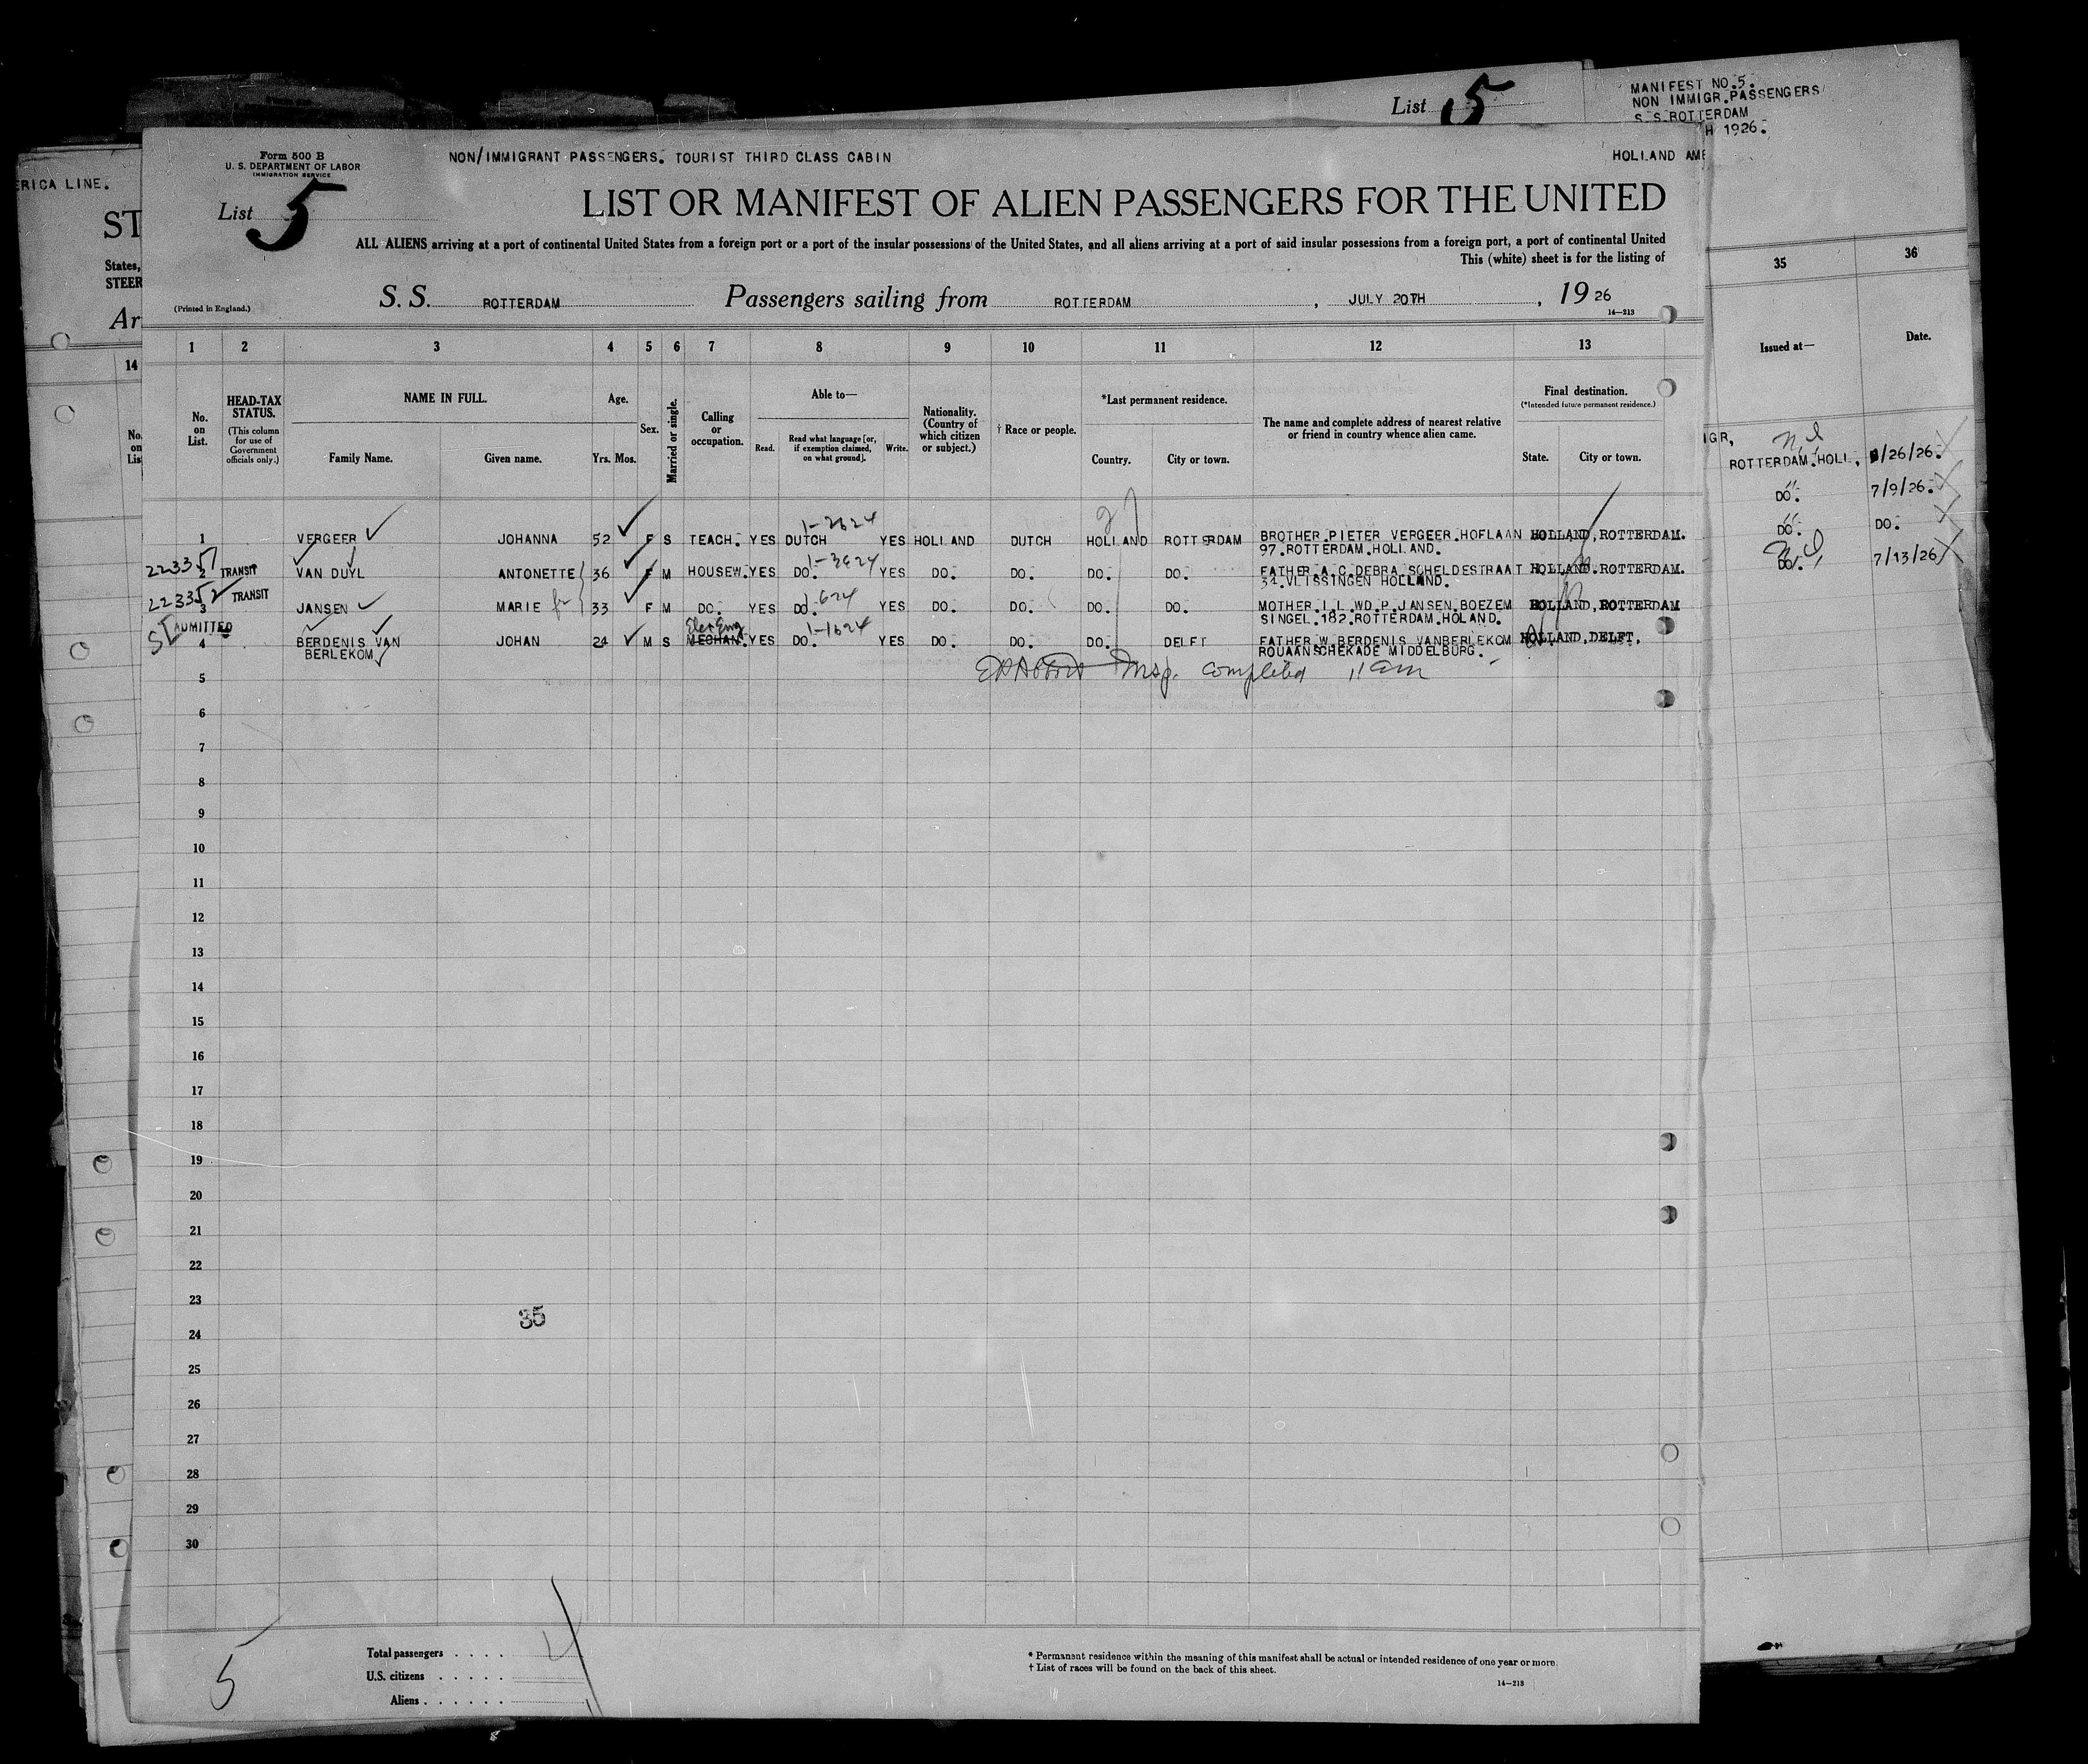 List 5
MANIFEST NO.5.
NON IMMIGR.PASSENGERS
S S ROTTERDAM
H 1926.
35 36
Issued at— Date.
IGR,
ROTTERDAM.HOLL, /26/26.
DO. 7/9/26.
DO. DO.
DO. 7/13/26
ERICA LINE.
ST
States,
STEER
Ar
14
No.
on
Lis
Form 500 B
U. S. DEPARTMENT OF LABOR
IMMIGRATION SERVICE
NON/IMMIGRANT PASSENGERS. TOURIST THIRD CLASS CABIN
HOLLAND AME
List 5
LIST OR MANIFEST OF ALIEN PASSENGERS FOR THE UNITED
ALL ALIENS arriving at a port of continental United States from a foreign port or a port of the insular possessions of the United States, and all aliens arriving at a port of said insular possessions from a foreign port, a port of continental United
This (white) sheet is for the listing of
(Printed in England.)
S. S. ROTTERDAM Passengers sailing from ROTTERDAM , JULY 20TH , 19 26
14—213
1 2 3 4 5 6 7 8 9 10 11 12 13
No. on List.
HEAD-TAX STATUS.
(This column for use of Government officials only.)
NAME IN FULL.
Family Name. Given name.
Age.
Yrs. Mos.
Sex.
Married or single.
Calling or occupation.
Able to—
Read. Read what language [or, if exemption claimed, on what ground]. Write.
Nationality. (Country of which citizen or subject.)
† Race or people.
*Last permanent residence.
Country. City or town.
The name and complete address of nearest relative or friend in country whence alien came.
Final destination.
(*Intended future permanent residence.)
State. City or town.
1-2624
1 VERGEER JOHANNA 52 F S TEACH. YES DUTCH YES HOLLAND DUTCH HOLLAND ROTTERDAM BROTHER.PIETER VERGEER.HOFLAAN HOLLAND,ROTTERDAM.
97.ROTTERDAM.HOLLAND.
22335 1-3624
2 TRANSIT VAN DUYL ANTONETTE 36 F M HOUSEW. YES DO. YES DO. DO. DO. DO. FATHER A.C.DEBRA SCHELDESTRAAT HOLLAND.ROTTERDAM.
34.VLISSINGEN HOLLAND.
22335 TRANSIT 624
3 JANSEN MARIE 33 F M DO. YES DO. YES DO. DO. DO. DO. MOTHER.I.L.WD.P.JANSEN.BOEZEM HOLLAND,ROTTERDAM
SINGEL.182.ROTTERDAM.HOLAND.
ADMITTED Elec Eng 1-1624
4 BERDENIS VAN JOHAN 24 M S MECHAN. YES DO. YES DO. DO. DO. DELFT FATHER W.BERDENIS VANBERLEKOM HOLLAND,DELFT,
BERLEKOM ROUAANSCHEKADE MIDDELBURG.
Insp. completed 11 am
5
6
7
8
9
10
11
12
13
14
15
16
17
18
19
20
21
22
23
35
24
25
26
27
28
29
30
Total passengers . . . .
U.S. citizens . . . . .
Aliens . . . . . .
5
* Permanent residence within the meaning of this manifest shall be actual or intended residence of one year or more.
† List of races will be found on the back of this sheet.
14—213